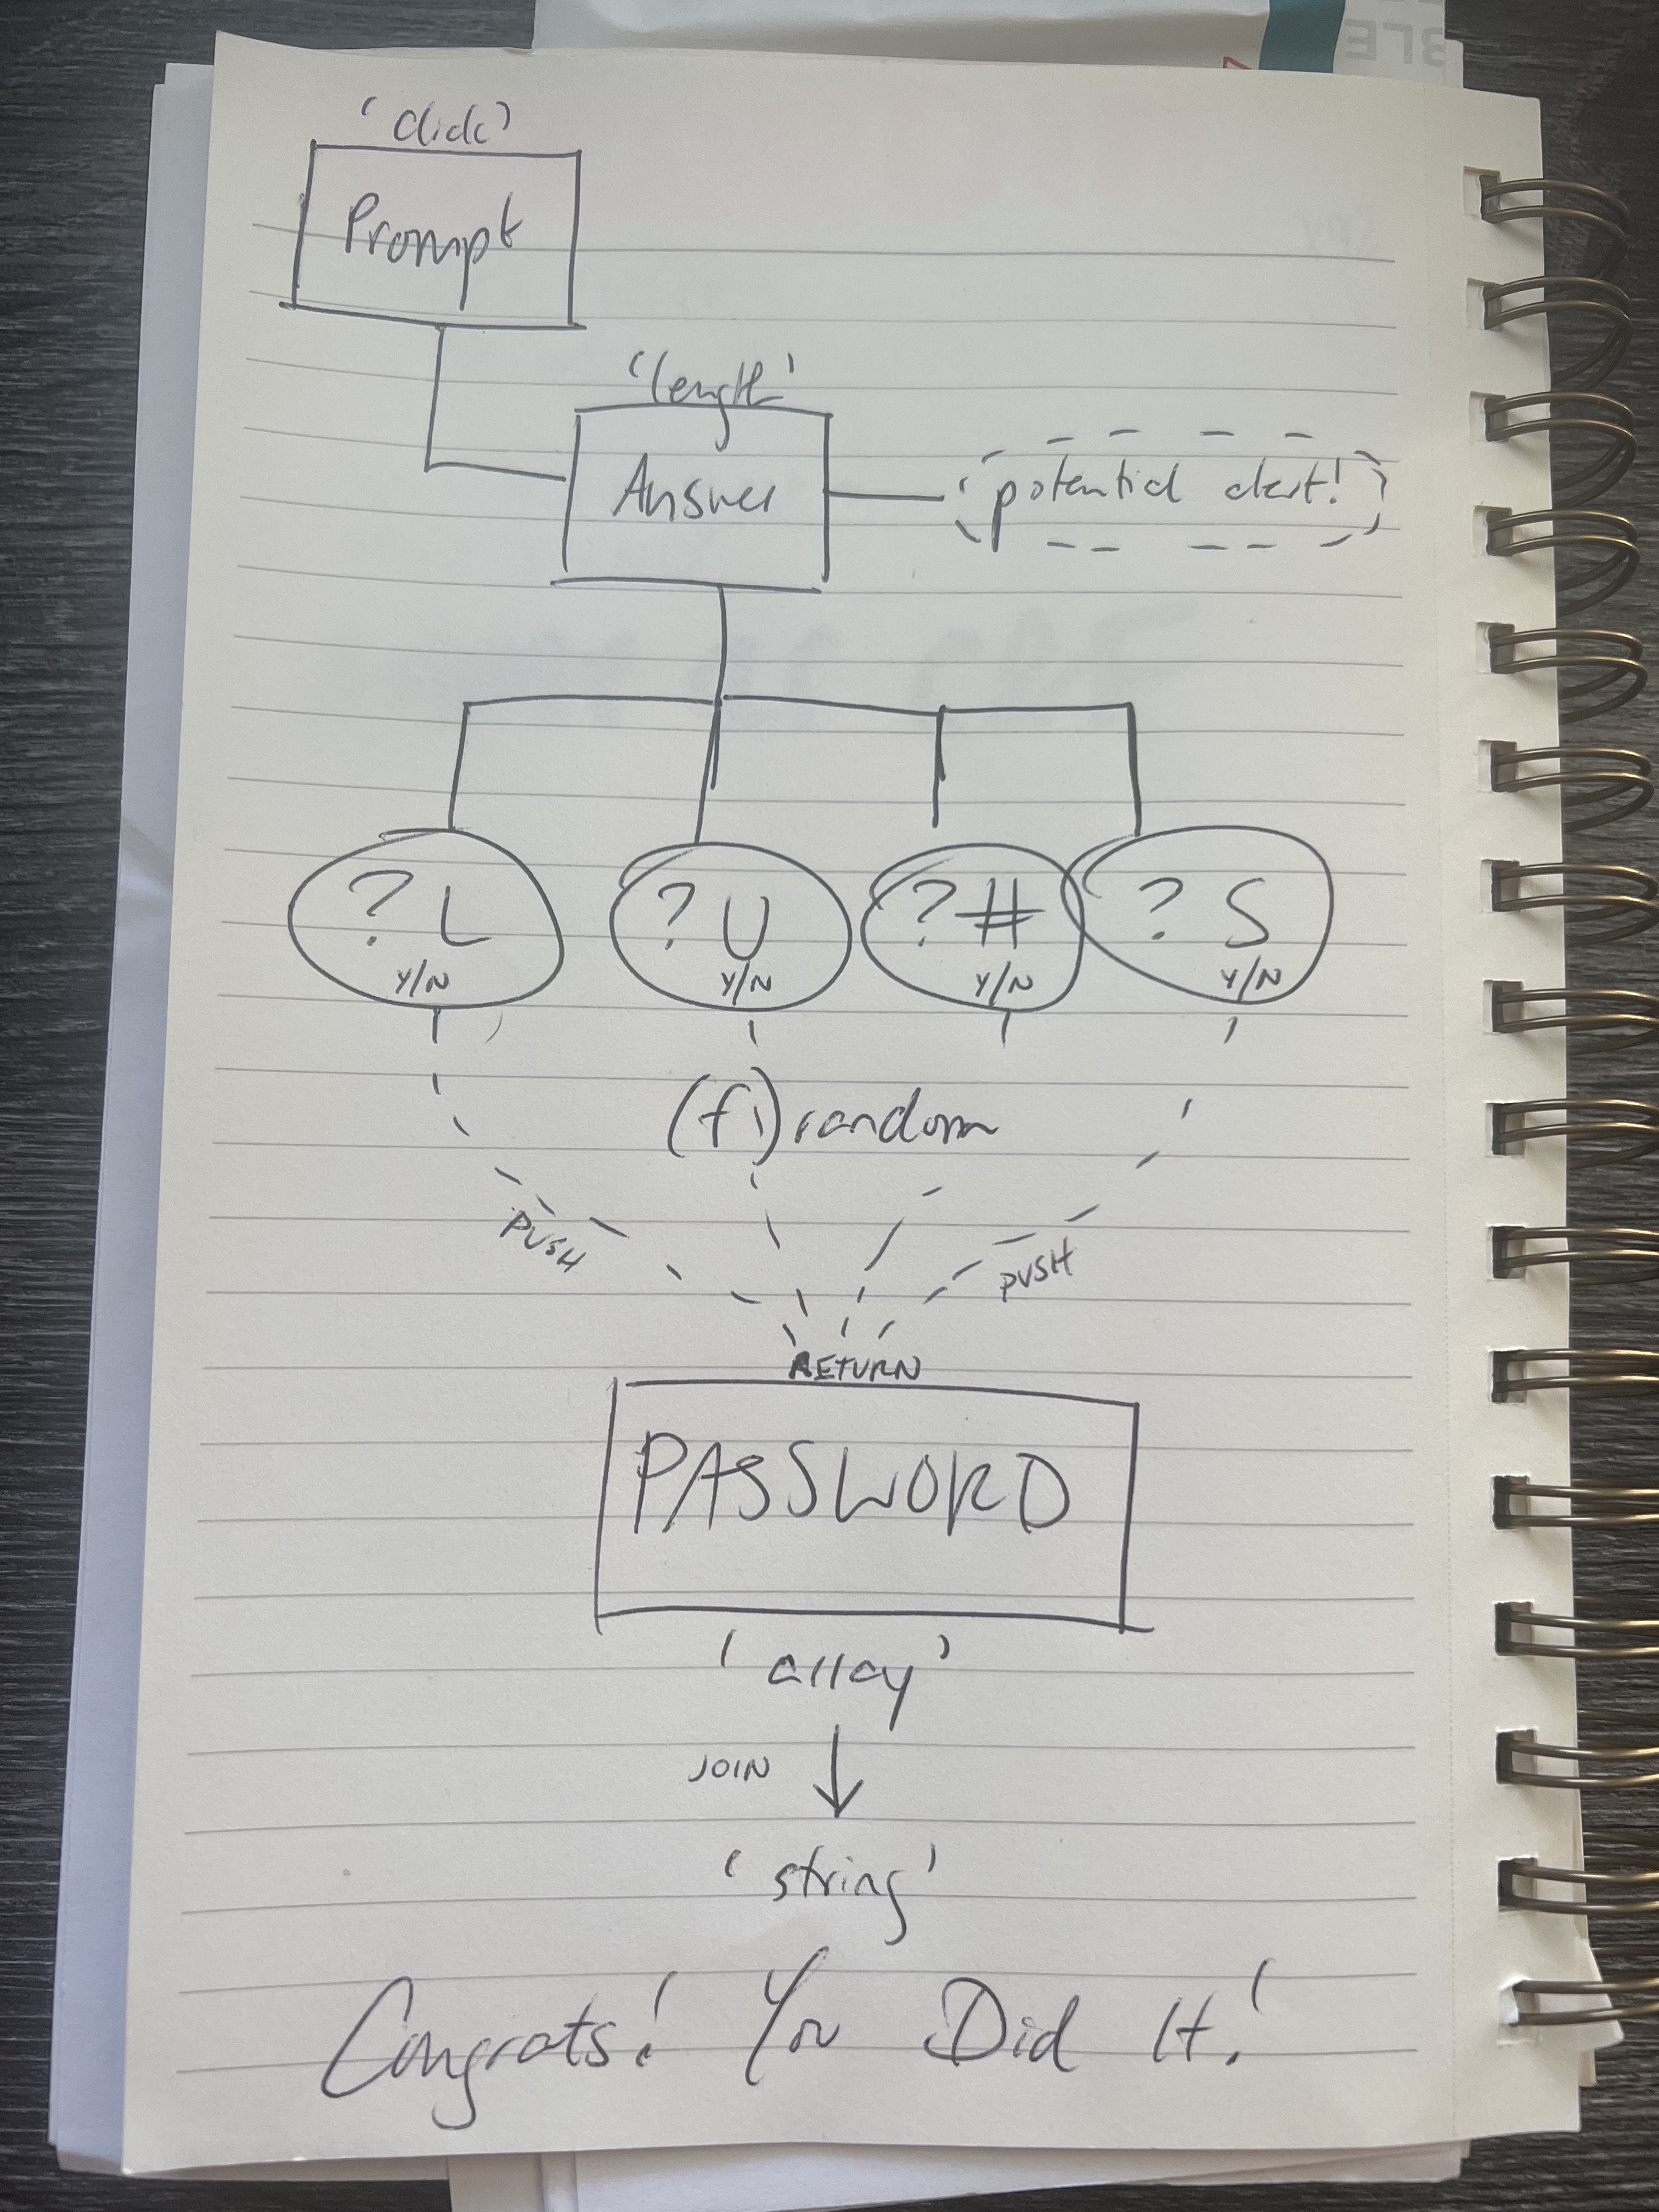 'click'
Prompt
'length'
Answer
potential alert!
? L
Y/N
? U
Y/N
? #
Y/N
? S
Y/N
(f) random
PUSH
PUSH
RETURN
PASSWORD
'array'
JOIN
'string'
Congrats! You Did It!